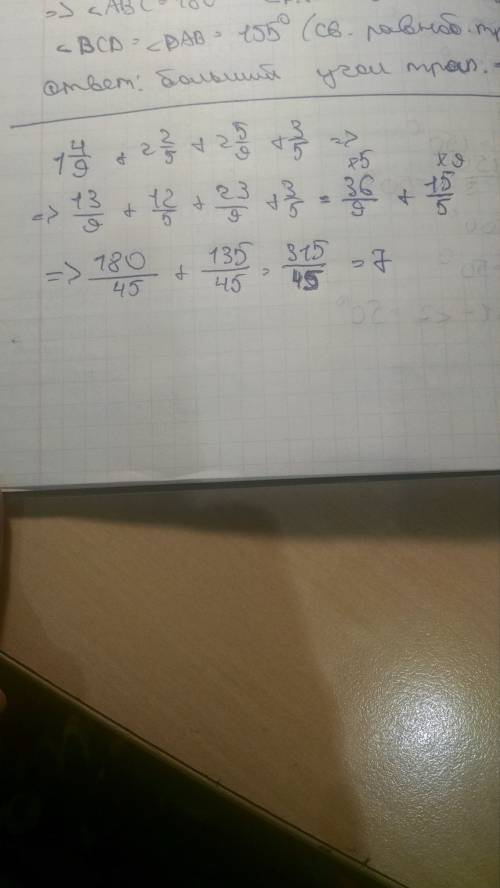 => <ABC = 180
<BCD = <BAD = 155⁰ (св. равноб. тр
ответ: больший угол трап. =
1 4/9 + 2 2/5 + 2 5/9 + 3/5 =>
×5 ×9
=> 13/9 + 12/5 + 23/9 + 3/5 = 36/9 + 15/5
=> 180/45 + 135/45 = 315/45 = 7